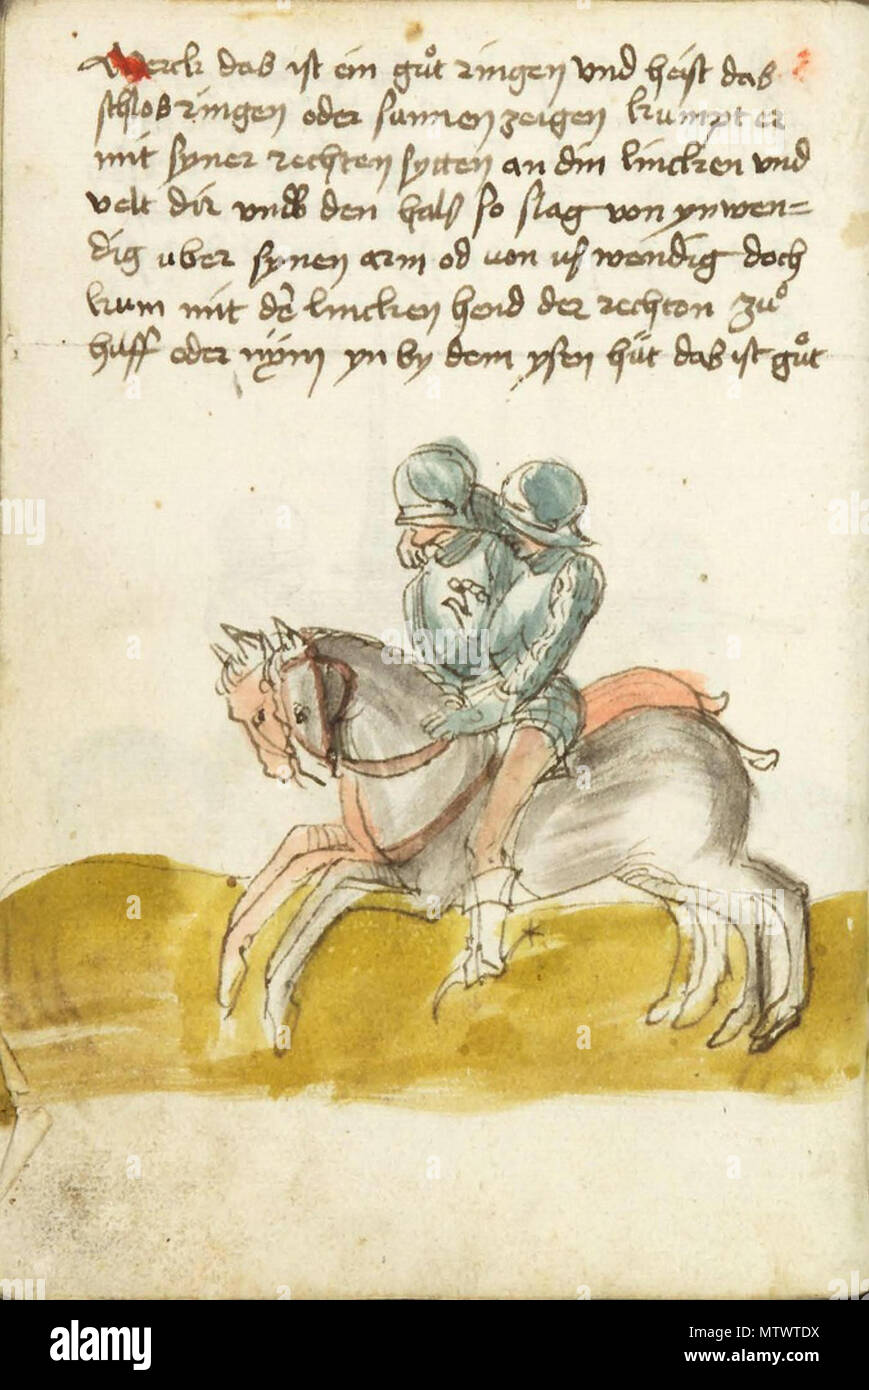 Merck das ist ein guͦt ringen vnd heist das
schlos ringen oder sunnen zeigen kumpt er
mit syner rechten sytten an din lincken vnd
velt dir vmb den hals so slag von ynwen=
dig uber synen arm od von us wendig doch
kum mit der lincken hend der rechton zuͦ
huff oder nym yn by dem ysen huͦt das ist guͦt
alamy
a
alamy
Image ID: MTWTDX
www.alamy.com